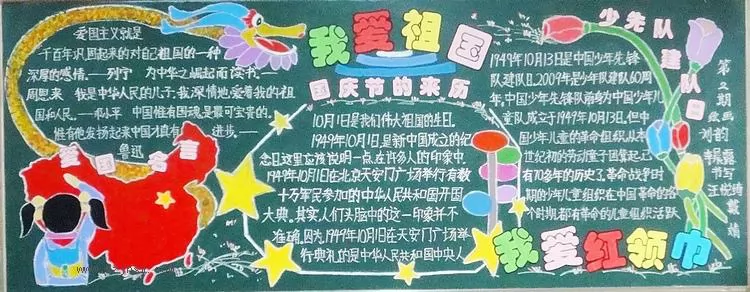 爱国主义就是
千百年巩固起来的对自己祖国的一种
深厚的感情。——列宁 为中华之崛起而读书。——
周恩来 我是中华人民的儿子,我深情地爱着我的祖
国和人民。——邓小平 中国惟有国魂是最可宝贵的,
惟有他发扬起来,中国才真有进步。——
鲁迅
爱国名言
我爱祖国
国庆节的来历
10月1日是我们伟大祖国的生日。
1949年10月1日,是新中国成立的纪
念日。这里应该说明一点,在许多人的印象中,
1949年10月1日在北京天安门广场举行有数
十万军民参加的中华人民共和国开国
大典。其实,人们头脑中的这一印象并不
准确。因为,1949年10月1日在天安门广场举
行典礼的是中华人民共和国中央人
少先队
建队日
1949年10月13日是中国少年先锋
队建队日。2009年是少年队建队60周
年,中国少年先锋队前身为中国少年儿
童队,成立于1949年10月13日。但中
国少年儿童的革命组织从本
世纪初的劳动童子团算起,已
有70多年的历史了。革命战争时
期的少年儿童组织在中国革命的各
个时期,都有革命的儿童组织活跃
我爱红领巾
第2期
刘韵
书写